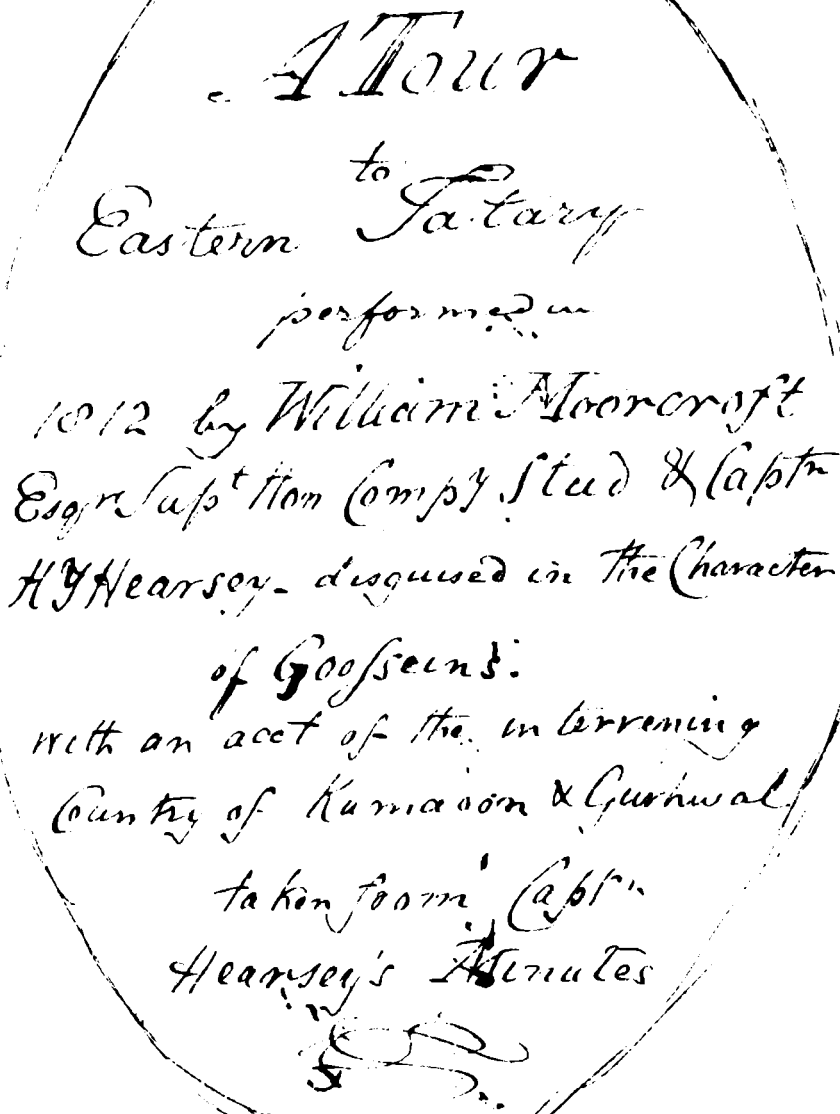 A Tour
to
Eastern Tatary
performed in
1812 by William Moorcroft
Esqr Supt Hon Compy Stud & Captn
H Y Hearsey - disguised in the Character
of Goosseins.
with an acct of the intervening
Country of Kumaoon & Gurhwal
taken from Captn
Hearsey's Minutes